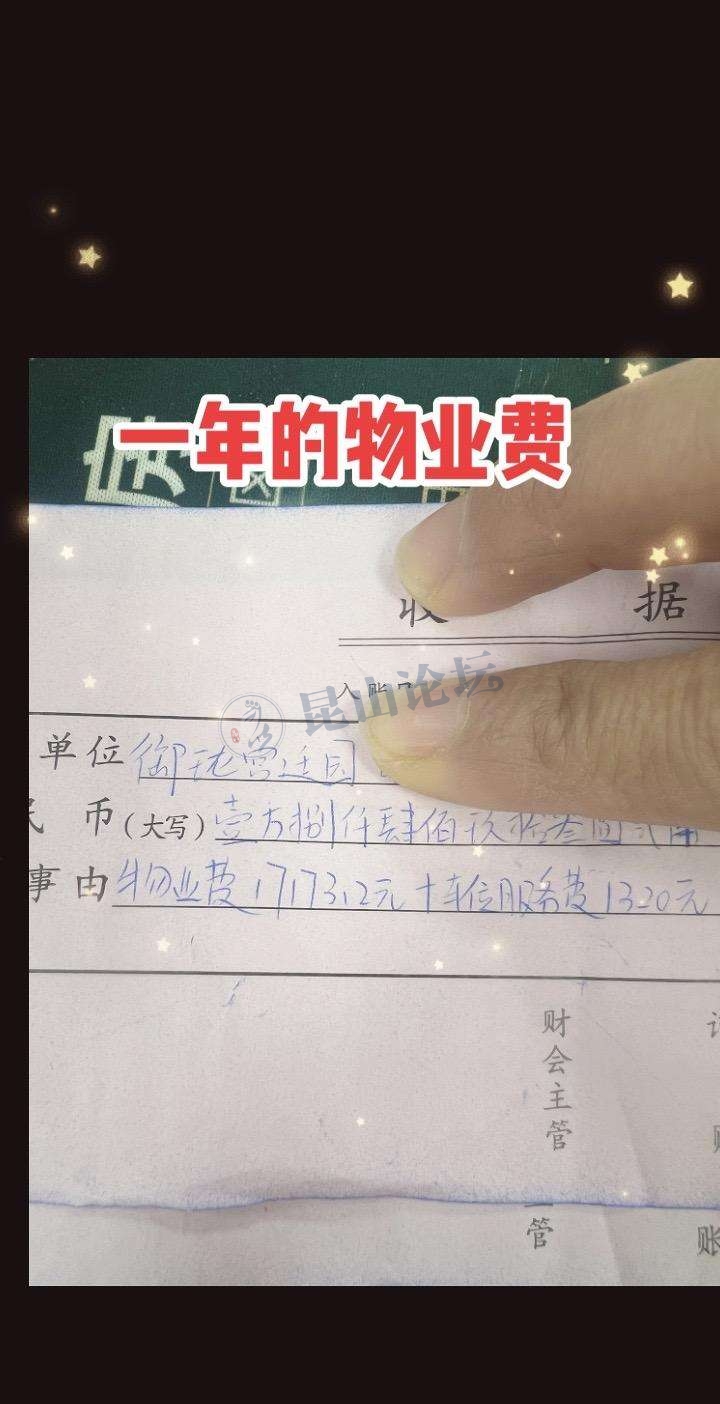 一年的物业费
收 据
昆山论坛
单位 御珑宫廷园
民 币(大写) 壹万捌仟肆佰玖拾叁圆贰角
事由 物业费17173.2元+车位服务费1320元
财会主管
管
账